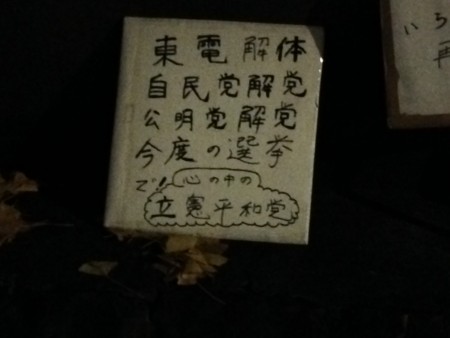 東電解体
自民党解党
公明党解党
今度の選挙
で!
心の中の
立憲平和党
いろ
再